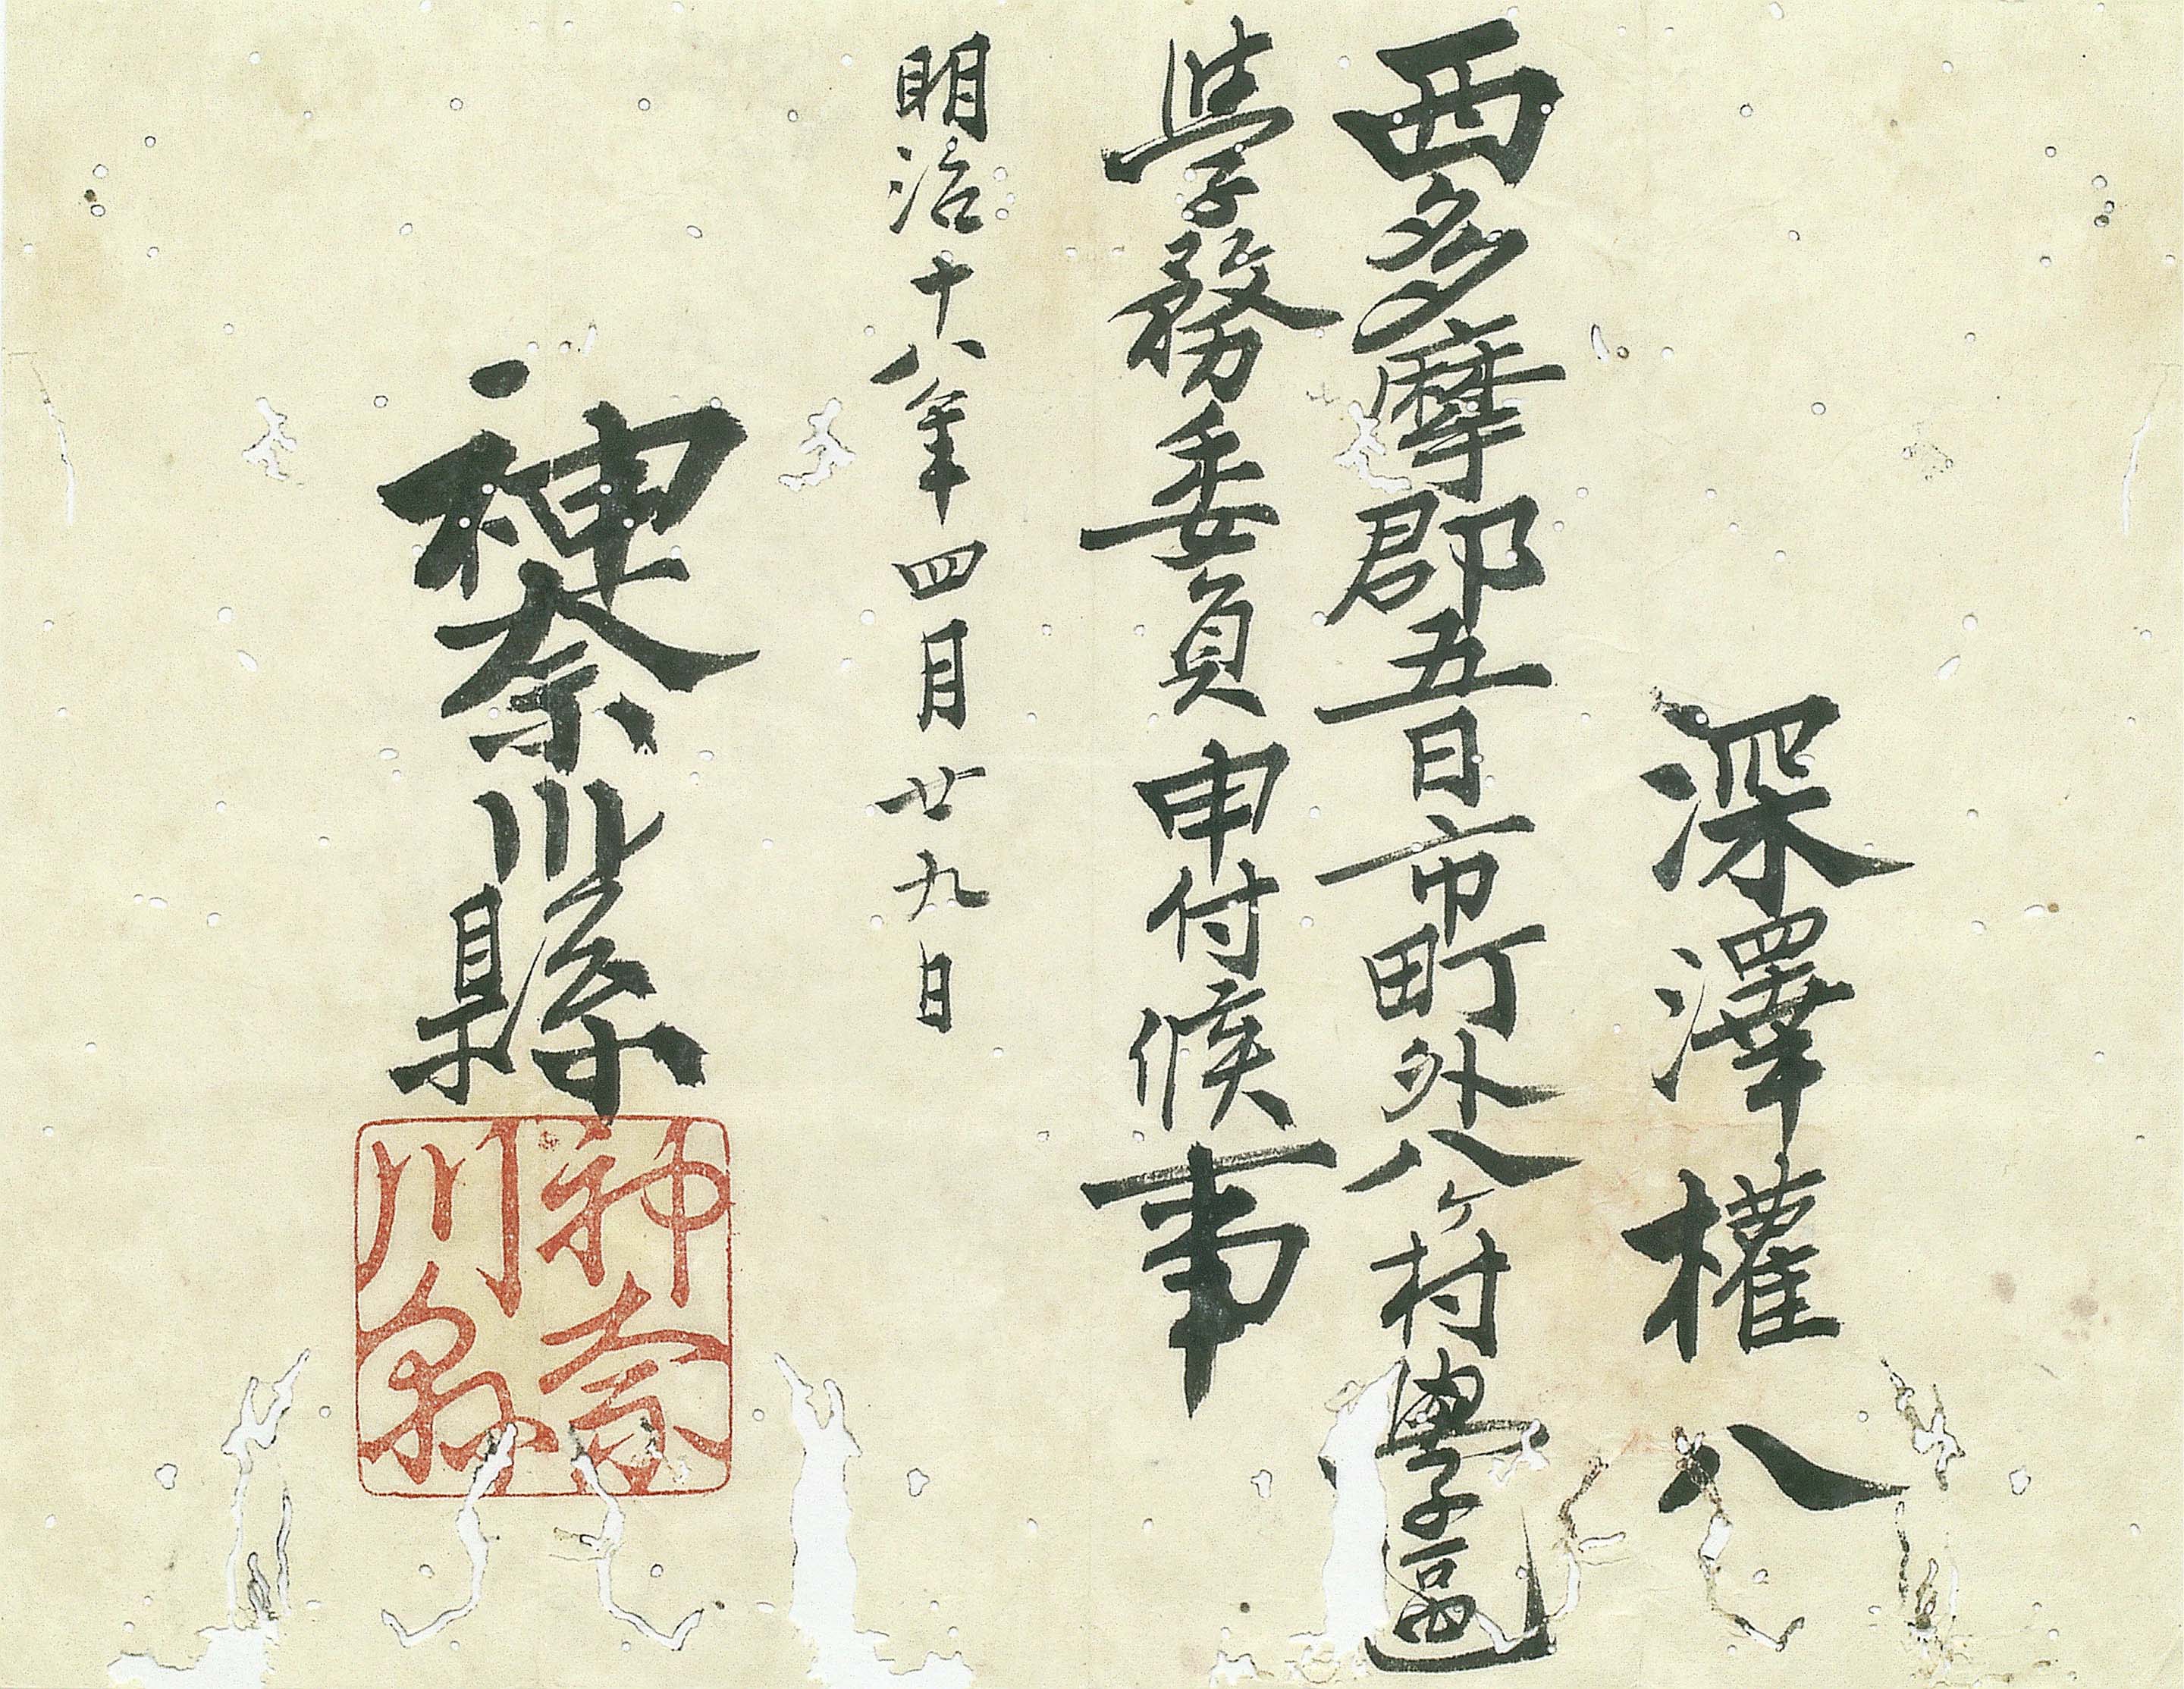 深澤權八
西多摩郡五日市町外八ヶ村學區
學務委員申付候事
明治十八年四月廿九日
神奈川縣
神奈川縣